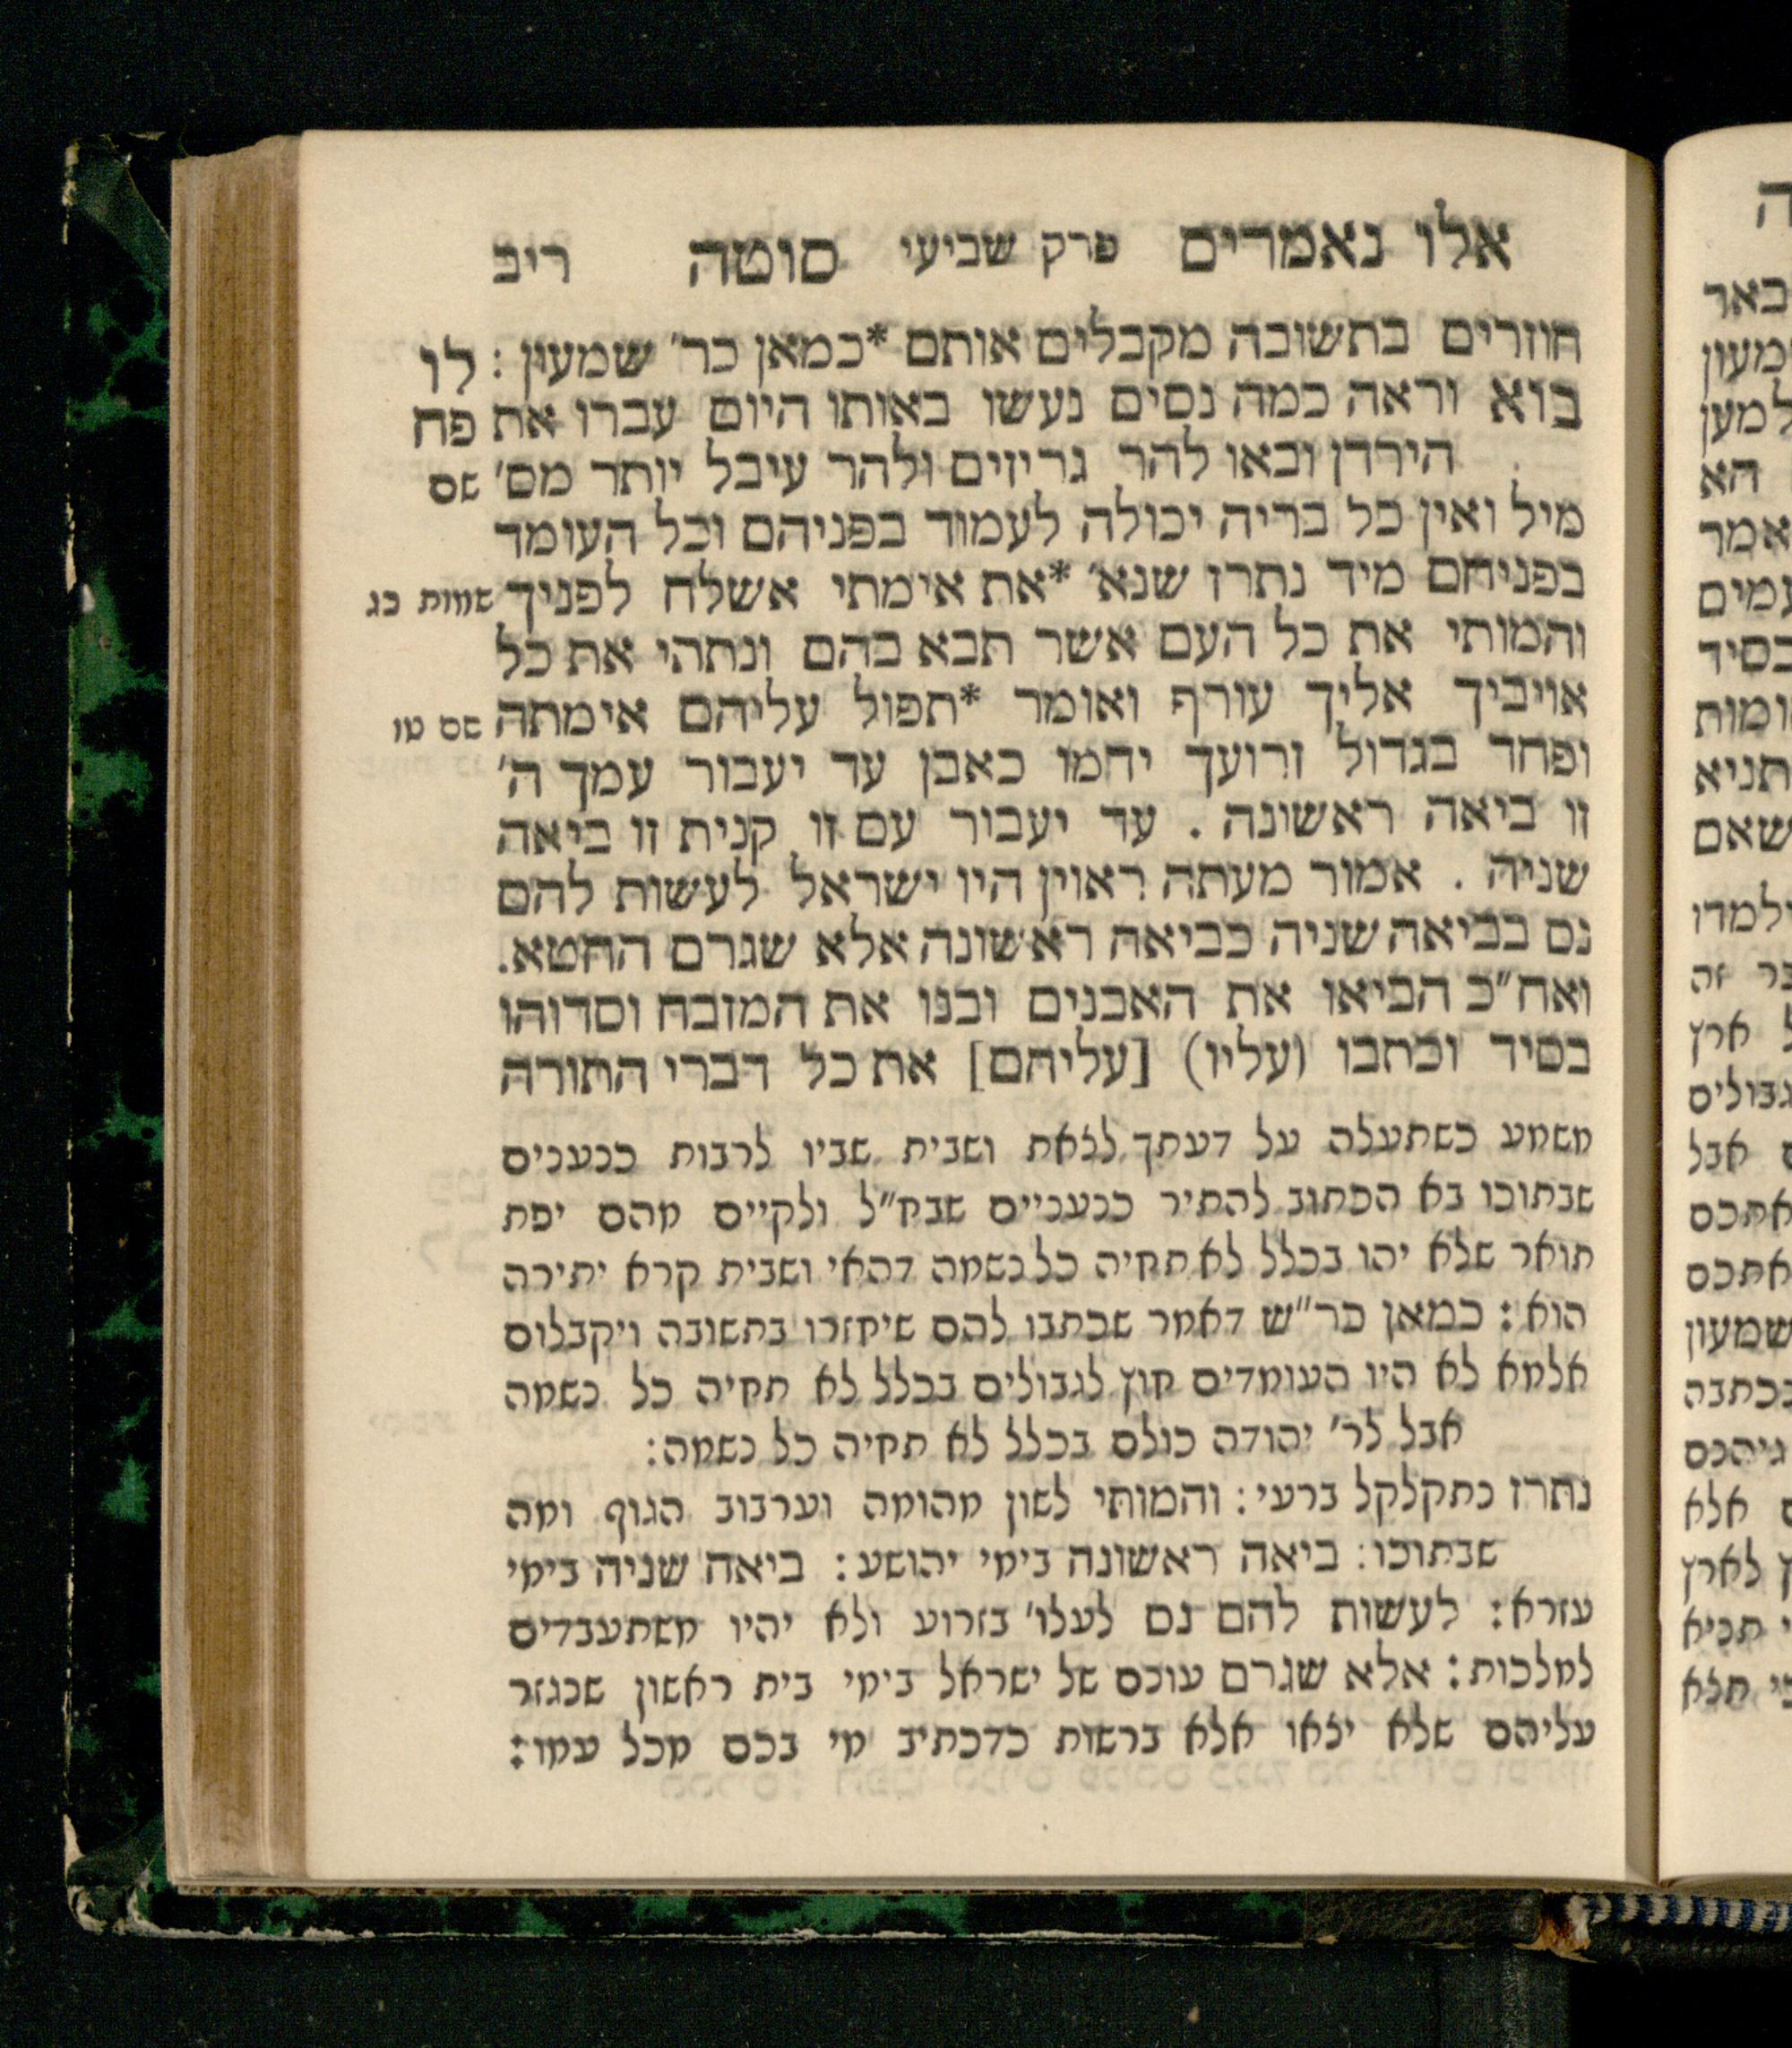 אלו נאמרים פרק שביעי סוטה ריב
חוזרים בתשובה מקבלים אותם *כמאן כר׳ שמעון : לו
בוא וראה כמה נסים נעשו באותו היום עברו את פח
הירדן ובאו להר גריזים ולהר עיבל יותר מס׳ שם
מיל ואין כל בריה יכולה לעמוד בפניהם וכל העומד
בפניהם מיד נתרז שנא׳ *את אימתי אשלח לפניך שמות כג
והמותי את כל העם אשר תבא בהם ונתתי את כל
אויביך אליך עורף ואומר *תפול עליהם אימתה שם טו
ופחד בגדול זרועך ידמו כאבן עד יעבור עמך ה׳
זו ביאה ראשונה . עד יעבור עם זו קנית זו ביאה
שניה . אמור מעתה ראוין היו ישראל לעשות להם
נם בביאה שניה כביאה ראשונה אלא שגרם החטא.
ואח״כ הביאו את האבנים ובנו את המזבח וסדוהו
בסיד וכתבו (עליו) [עליהם] את כל דברי התורה
משמע כשתעלה על דעתך לצאת ושבית שביו לרבות כנענים
שבתוכו בא הכתוב להתיר כנעניים שבח״ל ולקיים מהם יפת
תואר שלא יהו בכלל לא תחיה כל נשמה דהאי ושבית קרא יתירה
הוא : כמאן כר״ש דאמר שכתבו להם שיחזרו בתשובה ויקבלום
אלמא לא היו העומדים חוץ לגבולים בכלל לא תחיה כל נשמה
אבל לר׳ יהודה כולם בכלל לא תחיה כל נשמה :
נתרז נתקלקל ברעי : והמותי לשון מהומה וערבוב הגוף ומה
שבתוכו : ביאה ראשונה בימי יהושע : ביאה שניה בימי
עזרא : לעשות להם נם לעלו׳ בזרוע ולא יהיו משתעבדים
למלכות : אלא שגרם עונם של ישראל בימי בית ראשון שנגזר
עליהם שלא יצאו אלא ברשות כדכתיב מי בכם מכל עמו :